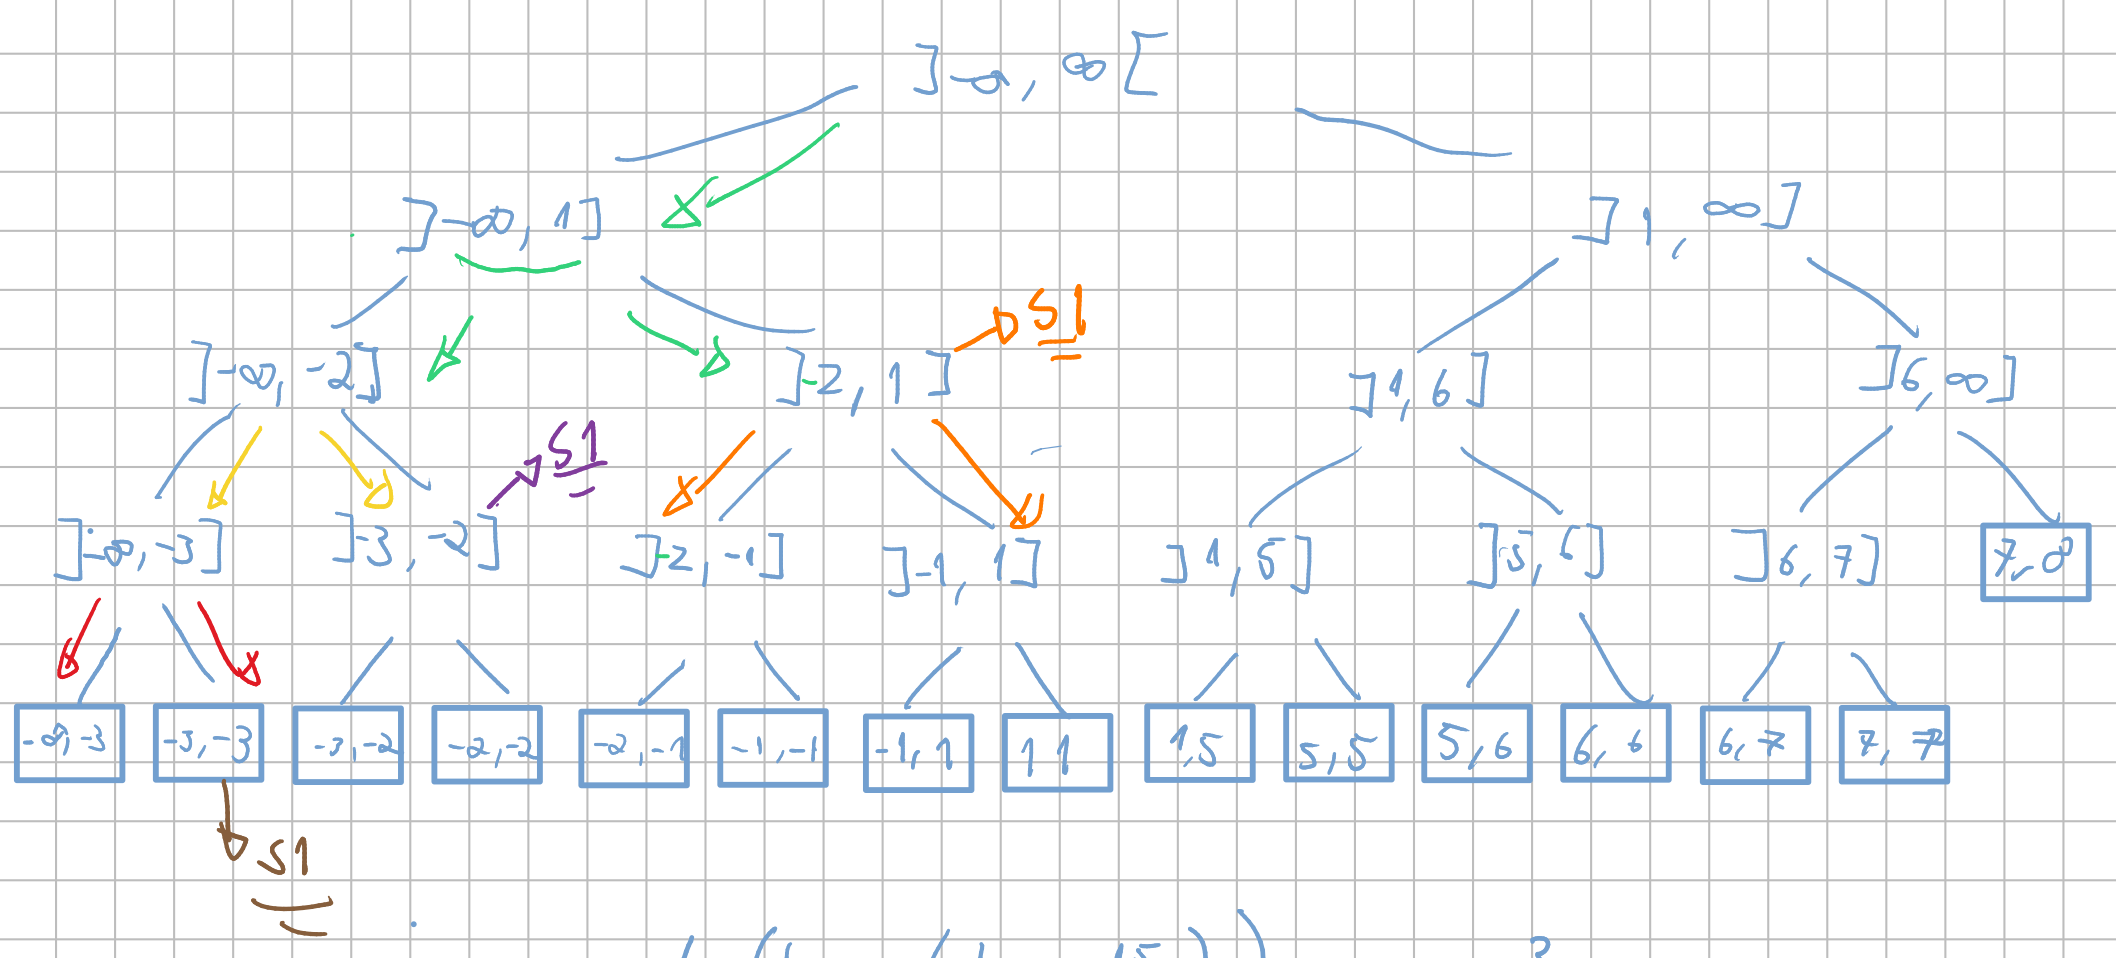 ]-∞, ∞[
]-∞, 1]
]1, ∞]
S1
]-∞, -2]
]-2, 1]
]1, 6]
]6, ∞]
S1
]-∞, -3]
]-3, -2]
]-2, -1]
]-1, 1]
]1, 5]
]5, 6]
]6, 7]
7, ∞
-∞, -3
-3, -3
-3, -2
-2, -2
-2, -1
-1, -1
-1, 1
1 1
1, 5
5, 5
5, 6
6, 6
6, 7
7, 7
S1